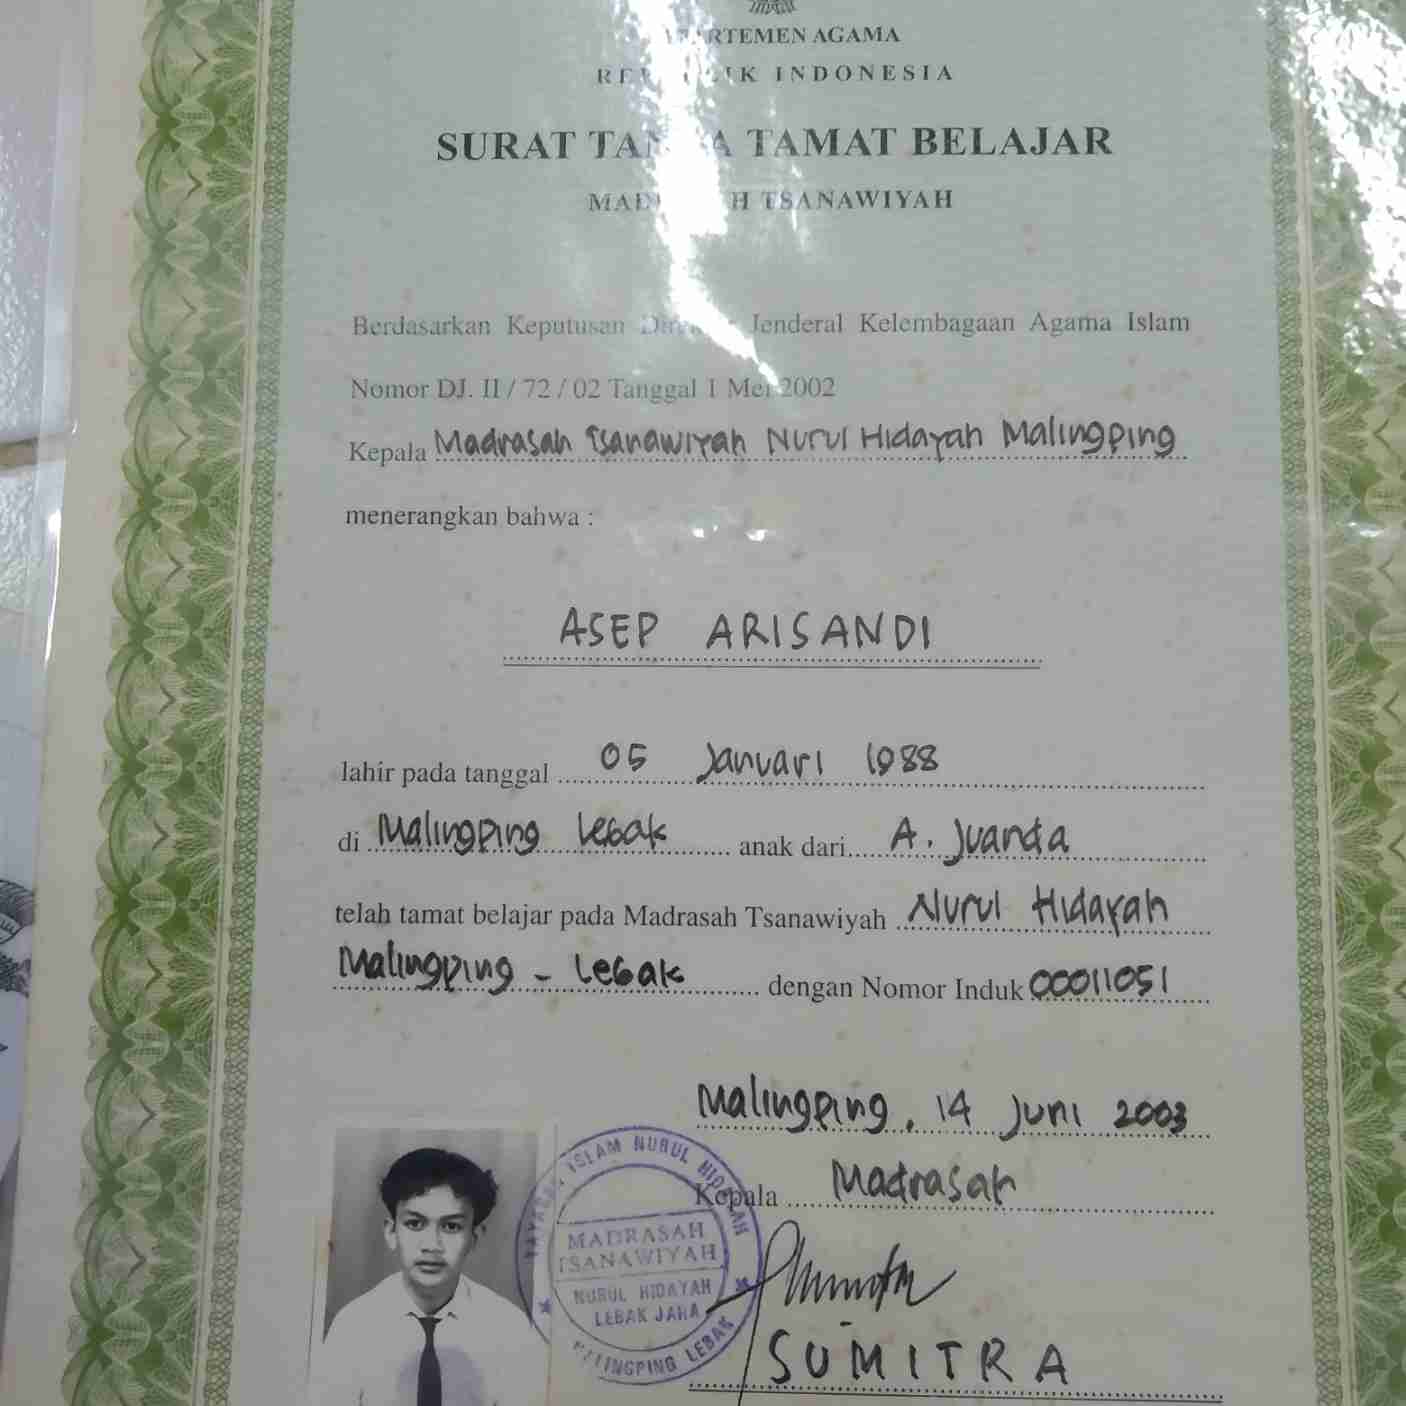 AGAMA
INDONESIA
SURAT TAMAT BELAJAR
TSANAWIYAH
Berdasarkan Keputusan Jenderal Kelembagaan Agama Islam
Nomor DJ. II / 72 / 02 Tanggal 1 Mei 2002
Kepala Madrasah Tsanawiyah Nurul Hidayah Malingping
menerangkan bahwa :
ASEP ARISANDI
lahir pada tanggal 05 Januari 1988
di Malingping Lebak anak dari A. Juanda
telah tamat belajar pada Madrasah Tsanawiyah Nurul Hidayah
Malingping - Lebak dengan Nomor Induk 00011051
Malingping, 14 Juni 2003
Kepala Madrasah
ISLAM NURUL HIDAYAH
MADRASAH
TSANAWIYAH
NURUL HIDAYAH
LEBAK JAHA
LEBAK
SUMITRA